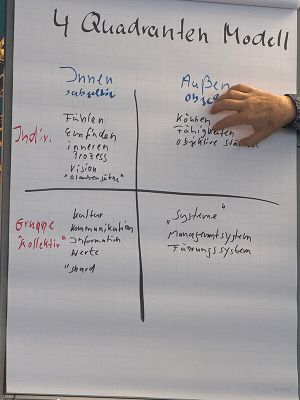 4 Quadranten Modell
Innen
subjektiv
Außen
Indiv.
Fühlen
Empfinden
inneren
Prozess
Vision
"Glaubenssätze"
Können
Fähigkeiten
objektive
Gruppe
"Kollektiv"
Kultur
Kommunikation
Information
Werte
"Systeme"
Managementsystem
Führungssystem